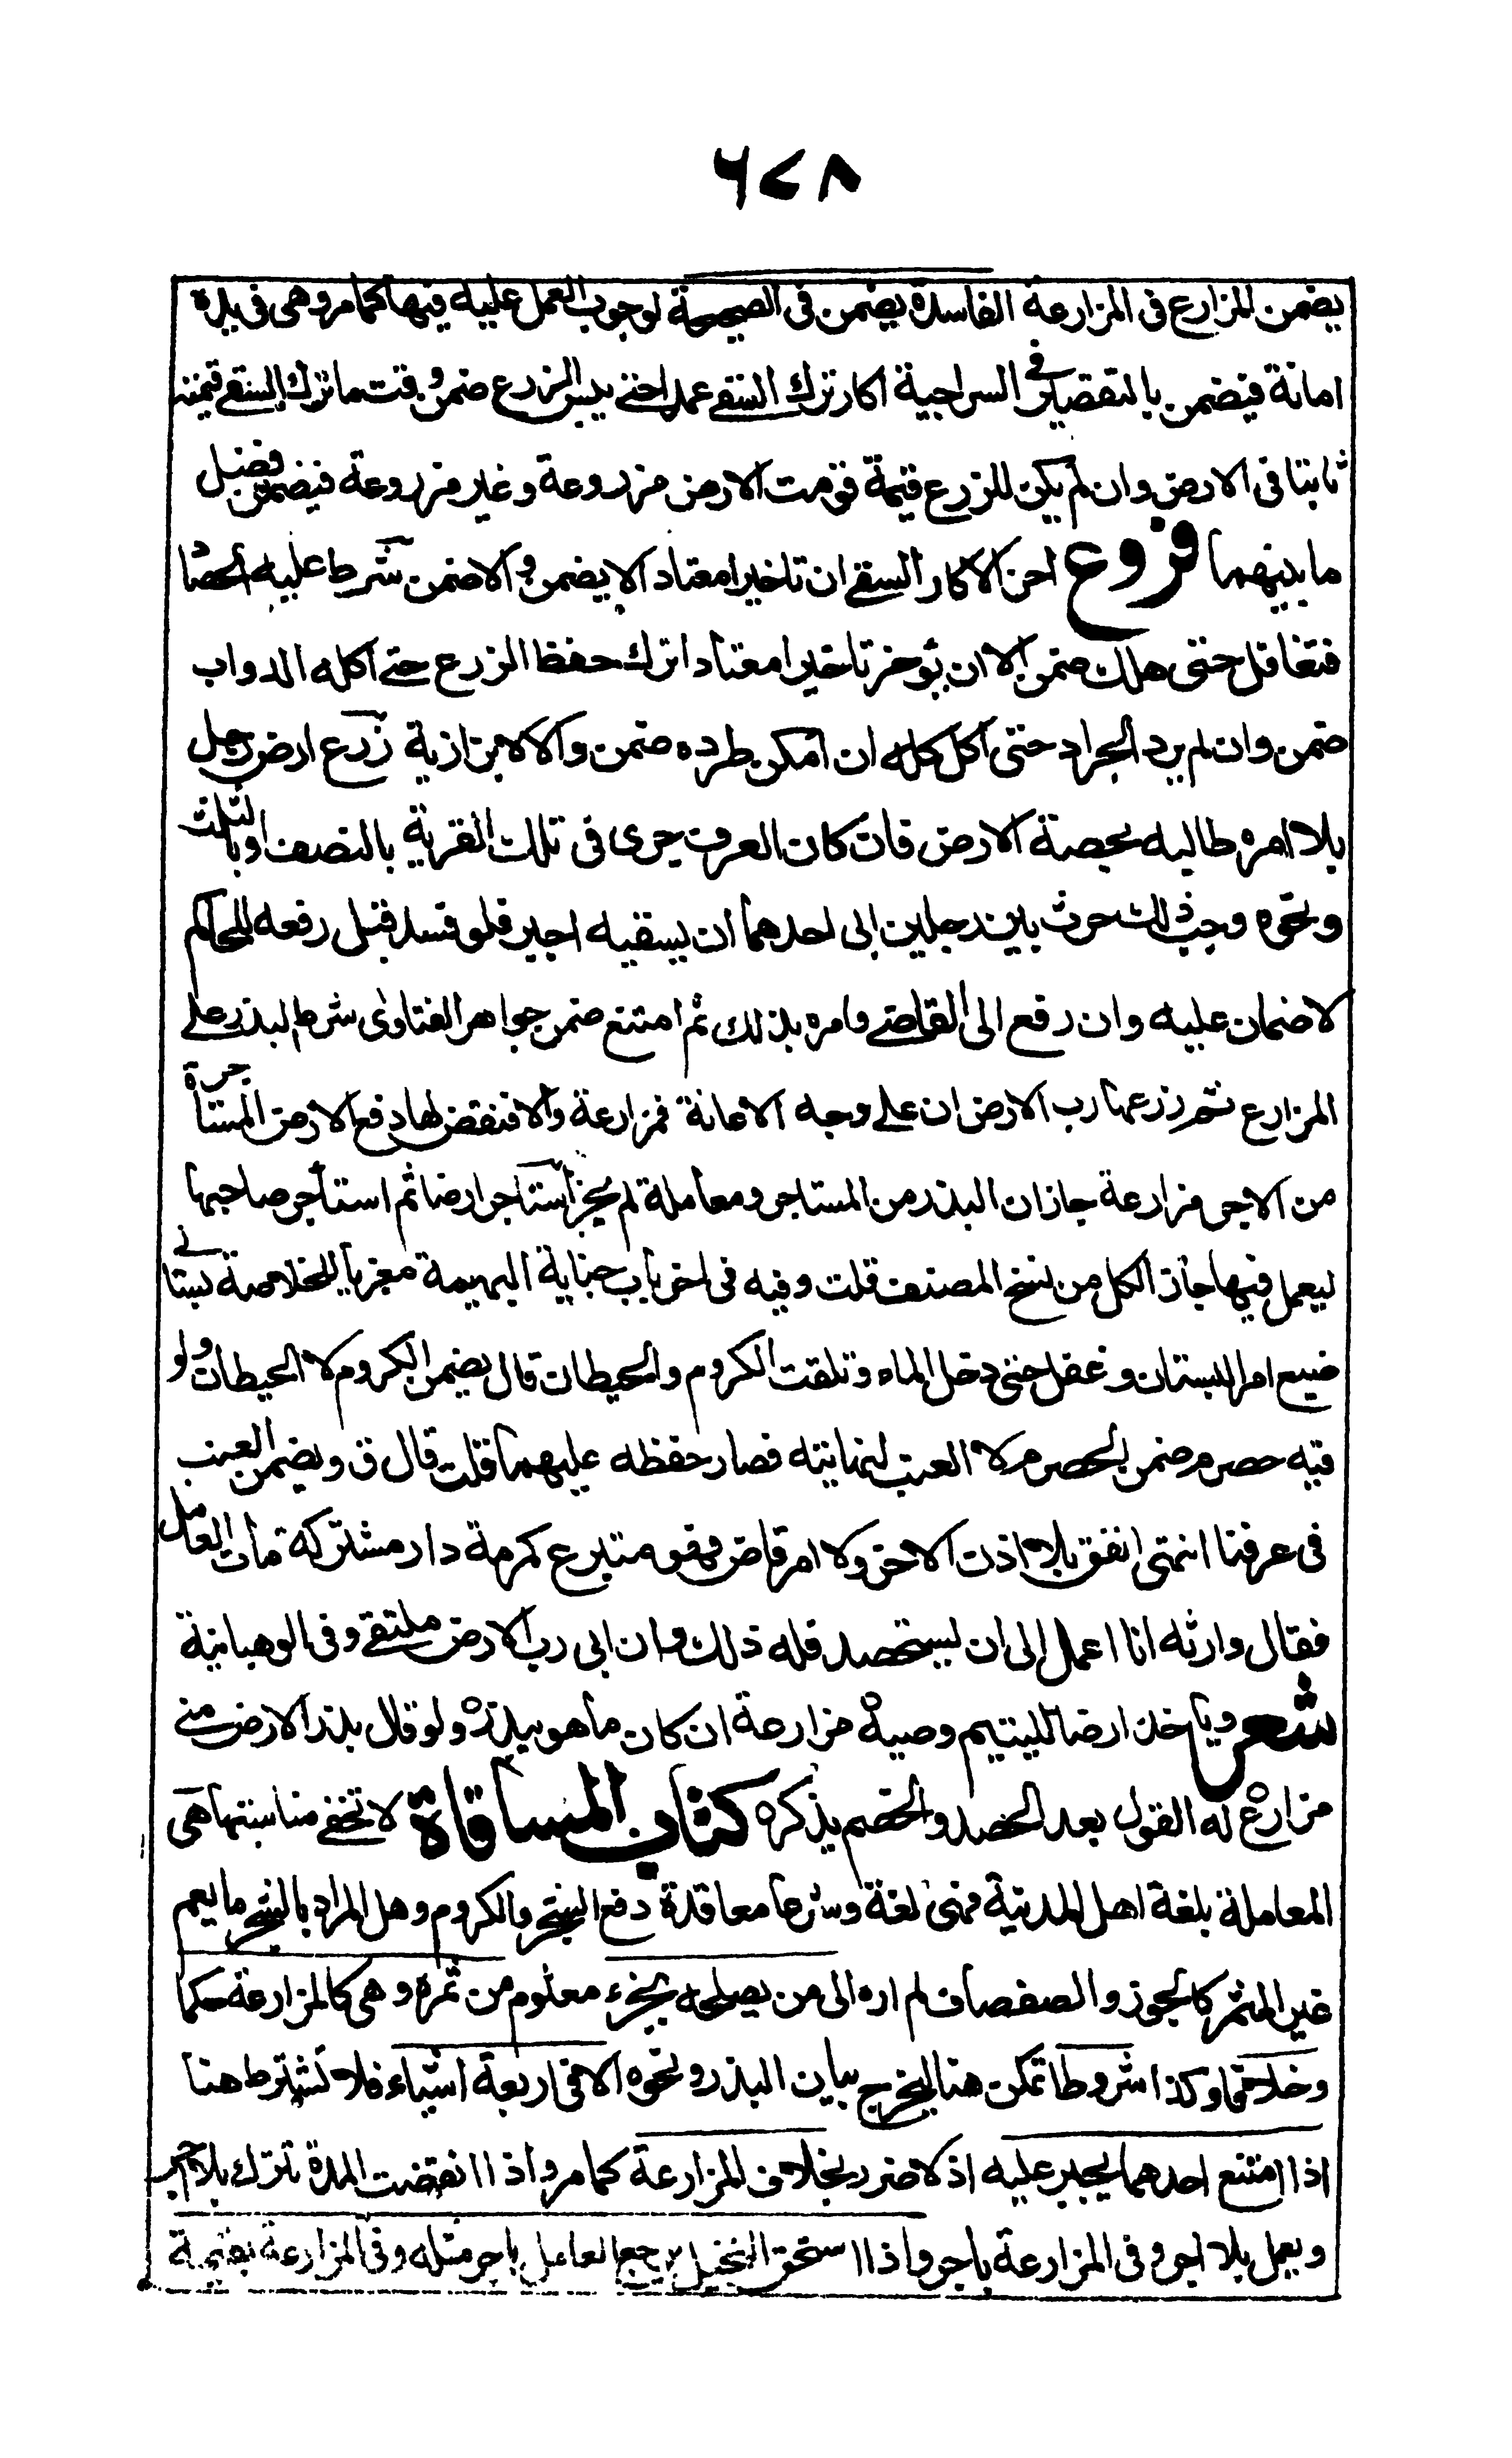 ٦٢٨
يضمن المزارع فى المزارعة الفاسدة يضمن فى الصحيحة لوجوب العمل عليه فيها كما مر وهى فى يده
امانة فيضمن بالتقصير فى السراجية اكار ترك السقى عمدا حتى يبس الزرع ضمن وقت ما ترك السقى قيمته
ثابتا فى الارض وان لم يكن للزرع قيمة قومت الارض مزروعة وغير مزروعة فيضمن فضل
ما بينهما فروع اخر الاكار السقى ان تاخيرا معتادا لا يضمن والا ضمن شرط عليه الحصاد
فتغافل حتى هلك ضمن الا ان يؤخر تاخيرا معتادا ترك حفظ الزرع حتى اكله الدواب
ضمن وان لم يرد الجراد حتى اكل كله ان امكن طرده ضمن والا لا بزازية زرع ارض رجل
بلا امره طالبه بحصة الارض فان كان العرف جرى فى تلك القرية بالنصف او بالثلث
ونحوه وجب ذلك حرث بين رجلين ابى احدهما ان يسقيه اجبر فلو فسد قبل رفعه للحاكم
لا ضمان عليه وان رفع الى القاضى وامره بذلك ثم امتنع ضمن جواهر الفتاوى شرط البذر على
المزارع ثم زرعها رب الارض ان على وجه الاعانة فمزارعة والا فنقض لها دفع الارض المستأجرة
من الاجر مزارعة جاز ان البذر من المستاجر ومعاملة لم يجز استاجر ارضا ثم استأجر صاحبها
ليعمل فيها جاز الكل من نسخ المصنف قلت وفيه فى اخر باب جناية البهيمة معزيا للخلاصة بستانى
ضيع امر البستان وغفل حتى دخل الماء وتلفت الكروم والحيطان قال يضمن الكروم لا الحيطان ولو
فيه حصرم ضمن الحصرم لا العنب لنهايته فصار حفظه عليهما قلت قال ق ويضمن العنب
فى عرفنا انتهى انفق بلا اذن الاخر ولا امر قاض فهو متبرع كمرمة دار مشتركة مات العامل
فقال وارثه انا اعمل الى ان يستحصد فله ذلك وان ابى رب الارض ملتقى وفى الوهبانية
شعر وياخذ ارضا لليتيم وصيه مزارعة ان كان ما هو يبذره ولو قال بذر الارض منى
مزارع له القول بعد الحصد والخصم يذكره كتاب المساقاة لا تخفى مناسبتها هى
المعاملة بلغة اهل المدينة فهى لغة وشرعا معاقدة دفع الشجر والكروم وهل المراد بالشجر ما يعم
غير المثمر كالجوز والصفصاف لم اره الى من يصلحه بجزء معلوم من ثمره وهى كالمزارعة حكما
وخلافا وكذا شروطا تمكن هنا ليخرج بيان البذر ونحوه الا فى اربعة اشياء فلا تشترط هنا
اذا امتنع احدهما يجبر عليه اذ لا ضرر بخلاف المزارعة كما مر واذا انقضت المدة تترك بلا اجر
ويعمل بلا اجر وفى المزارعة باجر واذا استحق النخيل يرجع العامل باجر مثله وفى المزارعة بقيمة